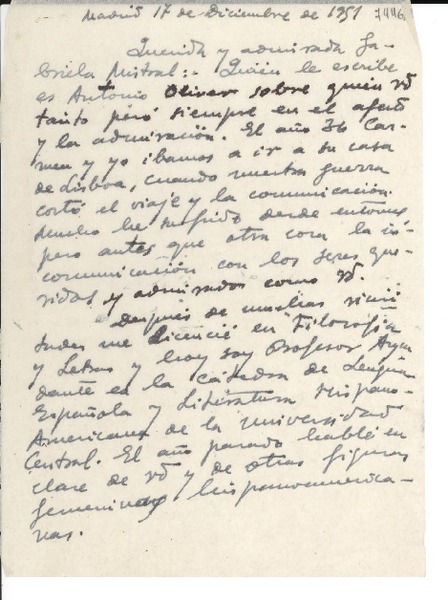 Madrid 17 de Diciembre de 1951
Querida y admirada Ga-
briela Mistral: - Quien le escribe
es Antonio Oliver sobre quien Vd
tanto pesó siempre en el afecto
y la admiración. El año 36 Car-
men y yo íbamos a ir a su casa
de Lisboa, cuando nuestra guerra
cortó el viaje y la comunicación.
Mucho he sufrido desde entonces
pero antes que otra cosa la in-
comunicación con los seres que-
ridos y admirados como Vd.
Después de muchas vicisi
tudes me licencié en Filosofía
y Letras y hoy soy Profesor Ayu-
dante en la Cátedra de Lengua
Española y Literatura Hispano-
Americana de la Universidad
Central. El año pasado hablé en
clase de Vd y de otras figuras
femeninas hispanoamerica-
nas.